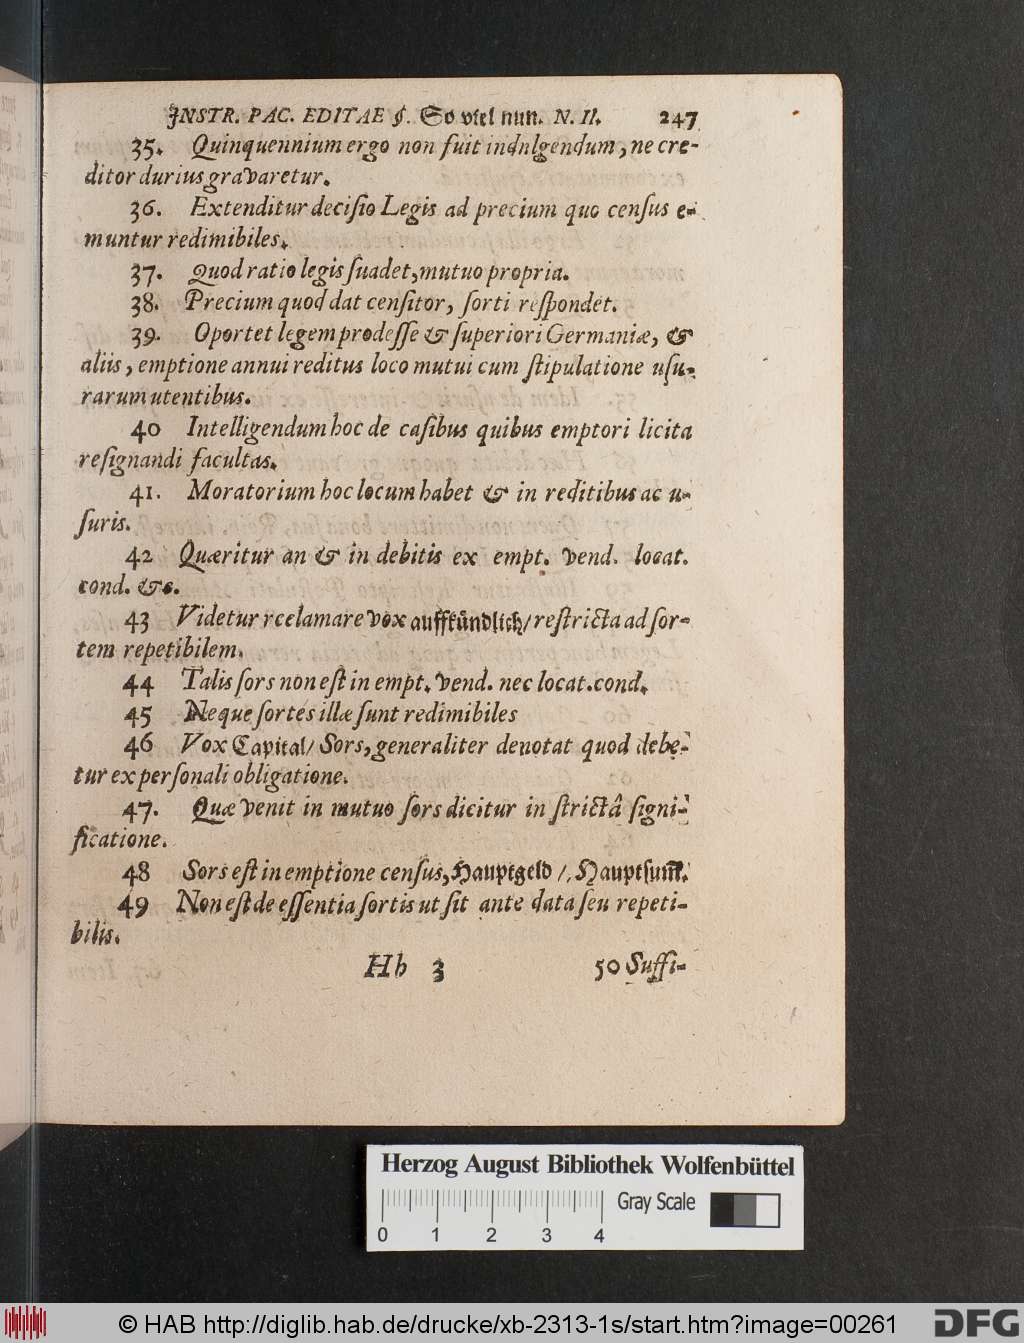 INSTR. PAC. EDITAE §. So viel nun. N. II. 247
35. Quinquennium ergo non fuit indulgendum, ne cre-
ditor durius gravaretur.
36. Extenditur deciſio Legis ad precium quo cenſus e-
muntur redimibiles.
37. Quod ratio legis ſuadet, mutuo propria.
38. Precium quod dat cenſitor, ſorti reſpondet.
39. Oportet legem prodeſſe & ſuperiori Germaniæ, &
aliis, emptione annui reditus loco mutui cum ſtipulatione uſu-
rarum utentibus.
40 Intelligendum hoc de caſibus quibus emptori licita
reſignandi facultas.
41. Moratorium hoc locum habet & in reditibus ac u-
ſuris.
42 Quæritur an & in debitis ex empt. vend. locat.
cond. &c.
43 Videtur rcelamare vox auffkündlich/ reſtricta ad ſor-
tem repetibilem.
44 Talis ſors non eſt in empt. vend. nec locat. cond.
45 Neque ſortes illæ ſunt redimibiles
46 Vox Capital/ Sors, generaliter denotat quod debe-
tur ex perſonali obligatione.
47. Quæ venit in mutuo ſors dicitur in ſtrictâ ſigni-
ficatione.
48 Sors eſt in emptione cenſus, Hauptgeld /, Hauptſum̅.
49 Non eſt de eſſentia ſortis ut ſit ante data ſeu repeti-
bilis.
Hh 3 50 Suffi-
Herzog August Bibliothek Wolfenbüttel
Gray Scale
0 1 2 3 4
© HAB http://diglib.hab.de/drucke/xb-2313-1s/start.htm?image=00261
DFG